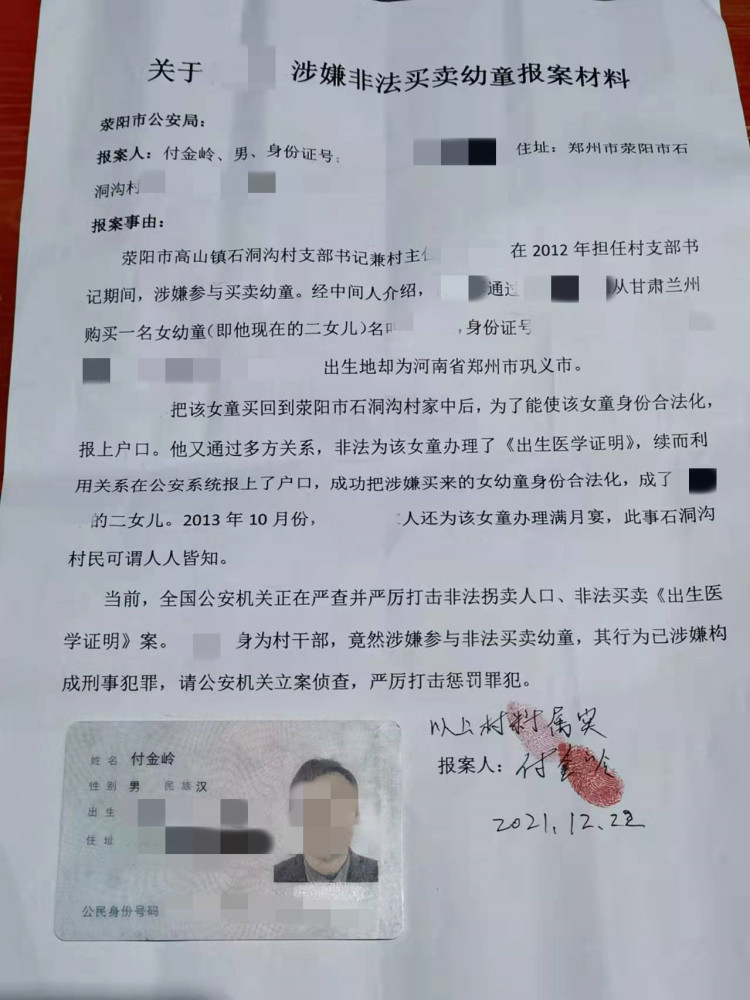 关于 涉嫌非法买卖幼童报案材料
荥阳市公安局：
报案人：付金岭、男、身份证号： 住址：郑州市荥阳市石
洞沟村
报案事由：
荥阳市高山镇石洞沟村支部书记兼村主 在 2012 年担任村支部书
记期间，涉嫌参与买卖幼童。经中间人介绍， 通过 从甘肃兰州
购买一名女幼童（即他现在的二女儿）名 ，身份证号
出生地却为河南省郑州市巩义市。
把该女童买回到荥阳市石洞沟村家中后，为了能使该女童身份合法化，
报上户口。他又通过多方关系，非法为该女童办理了《出生医学证明》，续而利
用关系在公安系统报上了户口，成功把涉嫌买来的女幼童身份合法化，成了
的二女儿。2013 年 10 月份， 人还为该女童办理满月宴，此事石洞沟
村民可谓人人皆知。
当前，全国公安机关正在严查并严厉打击非法拐卖人口、非法买卖《出生医
学证明》案。 身为村干部，竟然涉嫌参与非法买卖幼童，其行为已涉嫌构
成刑事犯罪，请公安机关立案侦查，严厉打击惩罚罪犯。
以上材料属实
报案人：付金岭
2021.12.22
姓名 付金岭
性别 男 民族 汉
出生
住址
公民身份号码